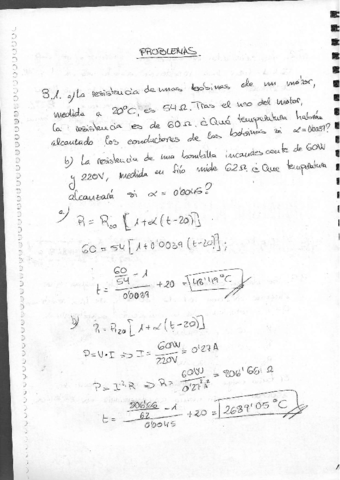 PROBLEMAS
3.1. a) La resistencia de unas bobinas de un motor,
medida a 20°C, es 54Ω. Tras el uso del motor,
la resistencia es de 60Ω. ¿Qué temperatura habrán
alcanzado los conductores de las bobinas si α=0'0039?
b) La resistencia de una bombilla incandescente de 60W
y 220V, medida en frío mide 62Ω ¿Qué temperatura
alcanzará si α = 0'0045?
a) R = R20 [1+α(t-20)]
60 = 54[1+0'0039(t-20)];
t = (60/54 - 1)/0'0039 + 20 = 48'49°C
b) R = R20[1+α(t-20)]
P=V·I => I = 60W/220V = 0'27A
P = I²·R => R = 60W/0'27² = 806'66 Ω
t = (806'66/62 - 1)/0'0045 + 20 = 2689'05°C